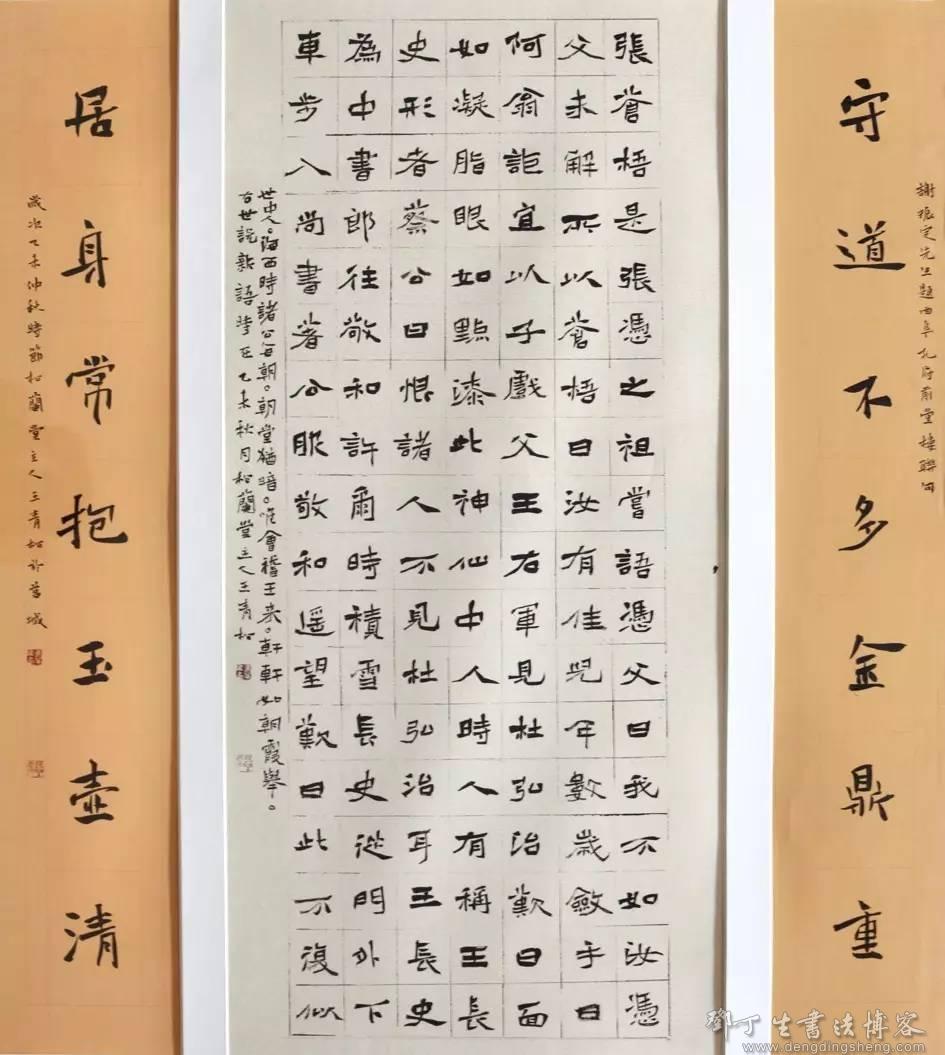 守道不多金鼎重
謝振定先生題曲阜孔府前堂楹聯句
張蒼梧是張憑之祖嘗語憑父曰我不如汝憑
父未解所以蒼梧曰汝有佳兒年數歲斂手曰
何翁詎宜以子戲父王右軍見杜弘治歎曰面
如凝脂眼如點漆此神仙中人時人有稱王長
史形者蔡公曰恨諸人不見杜弘治耳王長史
為中書郎往敬和許爾時積雪長史從門外下
車步入尚書著公服敬和遥望歎曰此不復似
世中人。海西時諸公每朝。朝堂猶暗。唯會稽王來。軒軒如朝霞舉。
右世説新語 乙未秋月松蘭堂主人王青松
居身常抱玉壺清
歲次乙未仲秋時節松蘭堂主人王青松
鄧丁生書法博客
www.dengdingsheng.com